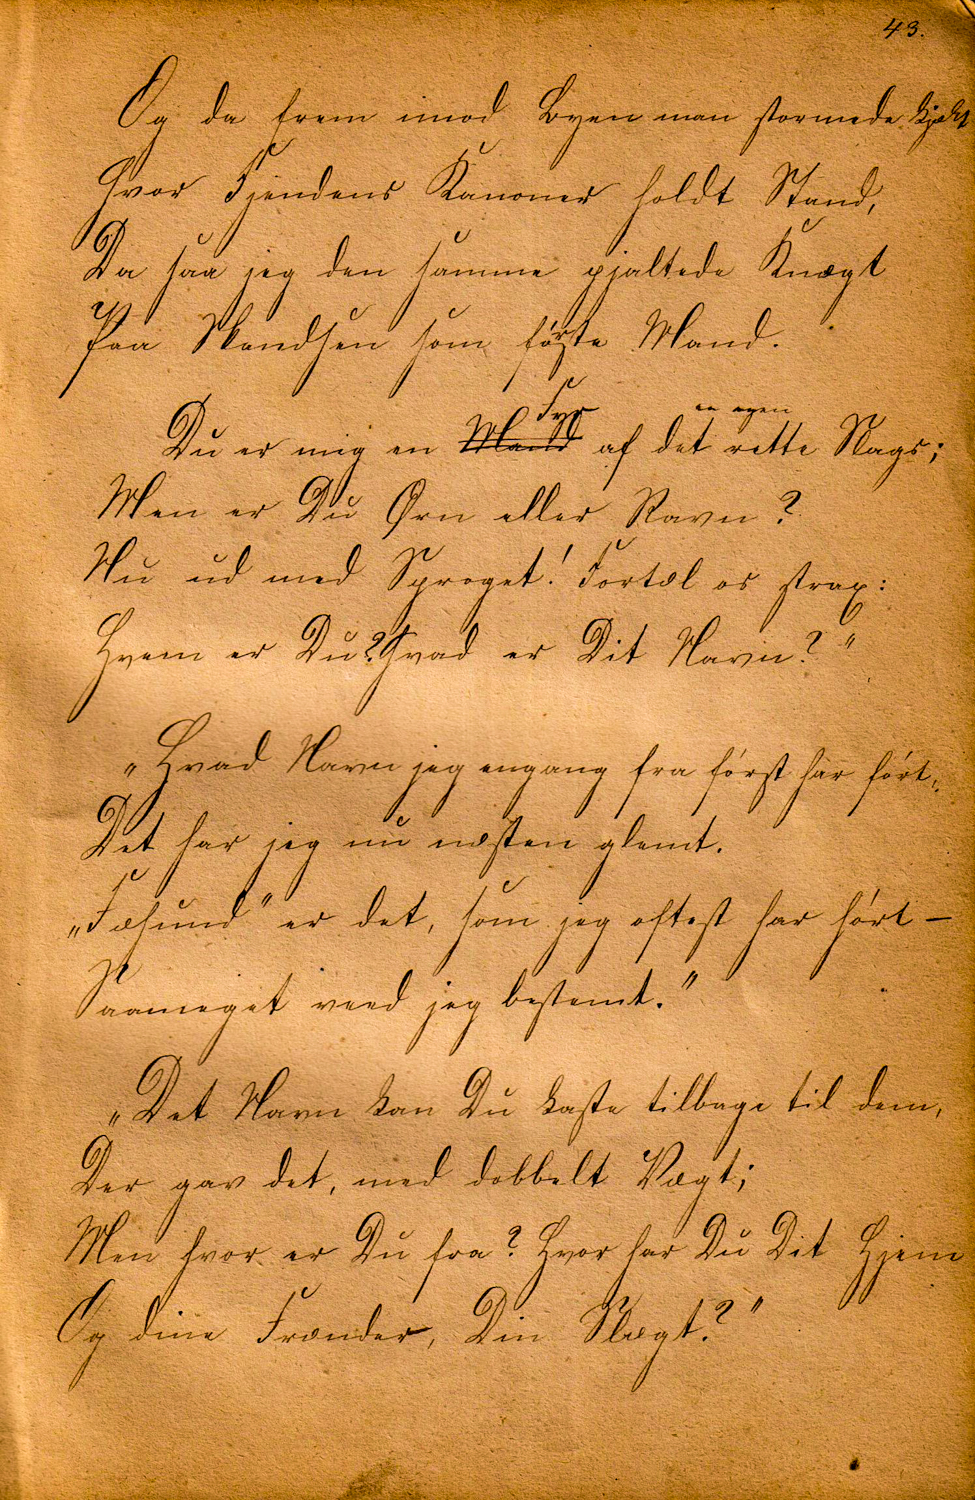 43.
Og da frem imod Byen man stormede kjækt
Hvor Fjendens Kanoner holdt Stand,
Da saa jeg den samme pjaltede Knægt
Paa Skandsen som förste Mand.
Fyr en egen
Du er mig en Mand af det rette Slags;
Men er Du Ørn eller Ravn?
Nu ud med Sproget! Fortæl os strax:
Hvem er Du? Hvad er Dit Navn?"
„Hvad Navn jeg engang fra først har ført,
Det har jeg nu næsten glemt.
„Fæhund" er det, som jeg oftest har hört —
Saameget veed jeg bestemt."
„Det Navn kan Du kaste tilbage til dem,
Der gav det, med dobbelt Vægt;
Men hvor er Du fra? Hvor har Du Dit Hjem
Og dine Frænder, Din Slægt?"